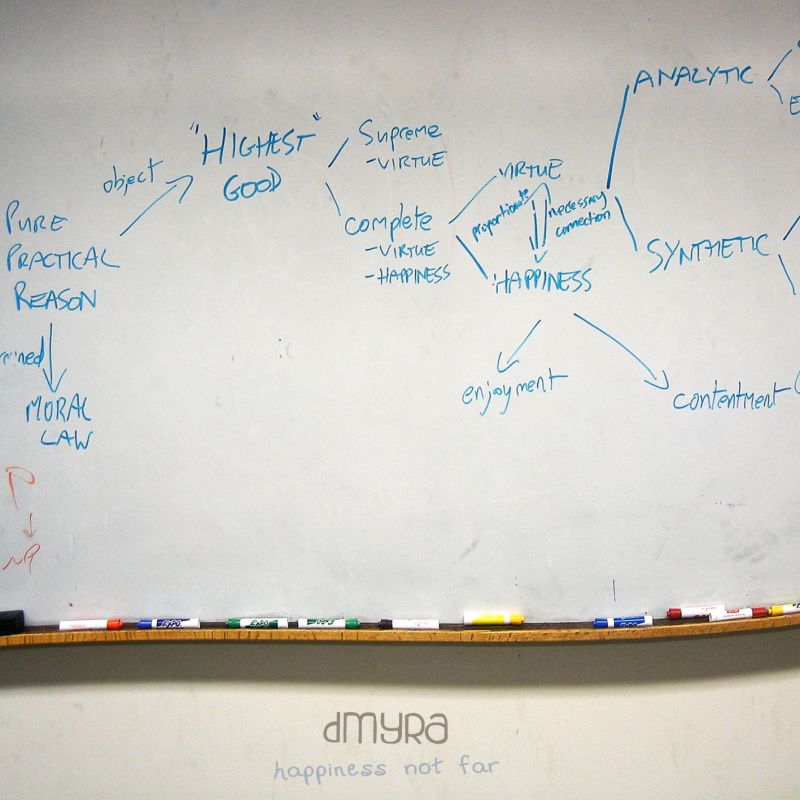 PURE
PRACTICAL
REASON
MORAL
LAW
object
"HIGHEST"
GOOD
Supreme
-VIRTUE
complete
-VIRTUE
-HAPPINESS
VIRTUE
proportionate
necessary
connection
HAPPINESS
enjoyment
contentment
ANALYTIC
SYNTHETIC
P
EXPO
EXPO
EXPO
dMYRa
happiness not far